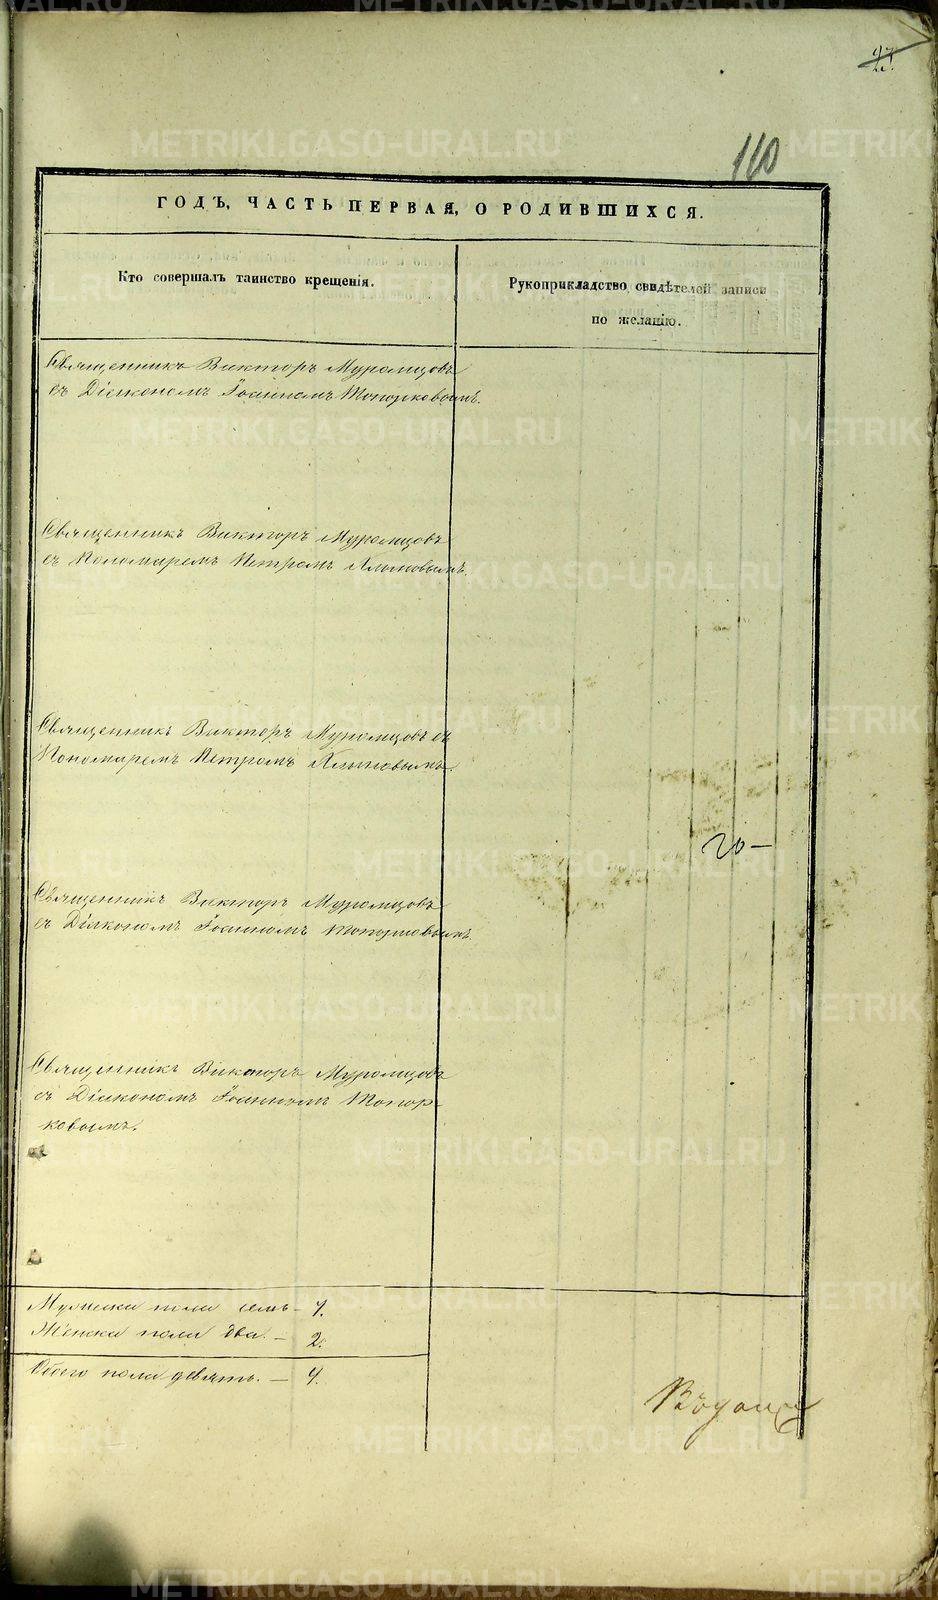 27.
160
ГОДЪ, ЧАСТЬ ПЕРВАЯ, О РОДИВШИХСЯ.
Кто совершалъ таинство крещенія.
Рукоприкладство свидѣтелей записи
по желанію.
Священникъ Викторъ Муромцовъ
съ Діакономъ Іоанномъ Топорковымъ.
Священникъ Викторъ Муромцовъ
съ Пономаремъ Петромъ
Священникъ Викторъ Муромцовъ съ
Пономаремъ Петромъ
20—
Священникъ Викторъ Муромцовъ
съ Діакономъ Іоанномъ Топорковымъ.
Священникъ Викторъ Муромцовъ
съ Діакономъ Іоанномъ Топор-
ковымъ.
Мужеска пола семь — 7.
Женска пола два. — 2.
Обоего пола девять. — 9.
METRIKI.GASO-URAL.RU